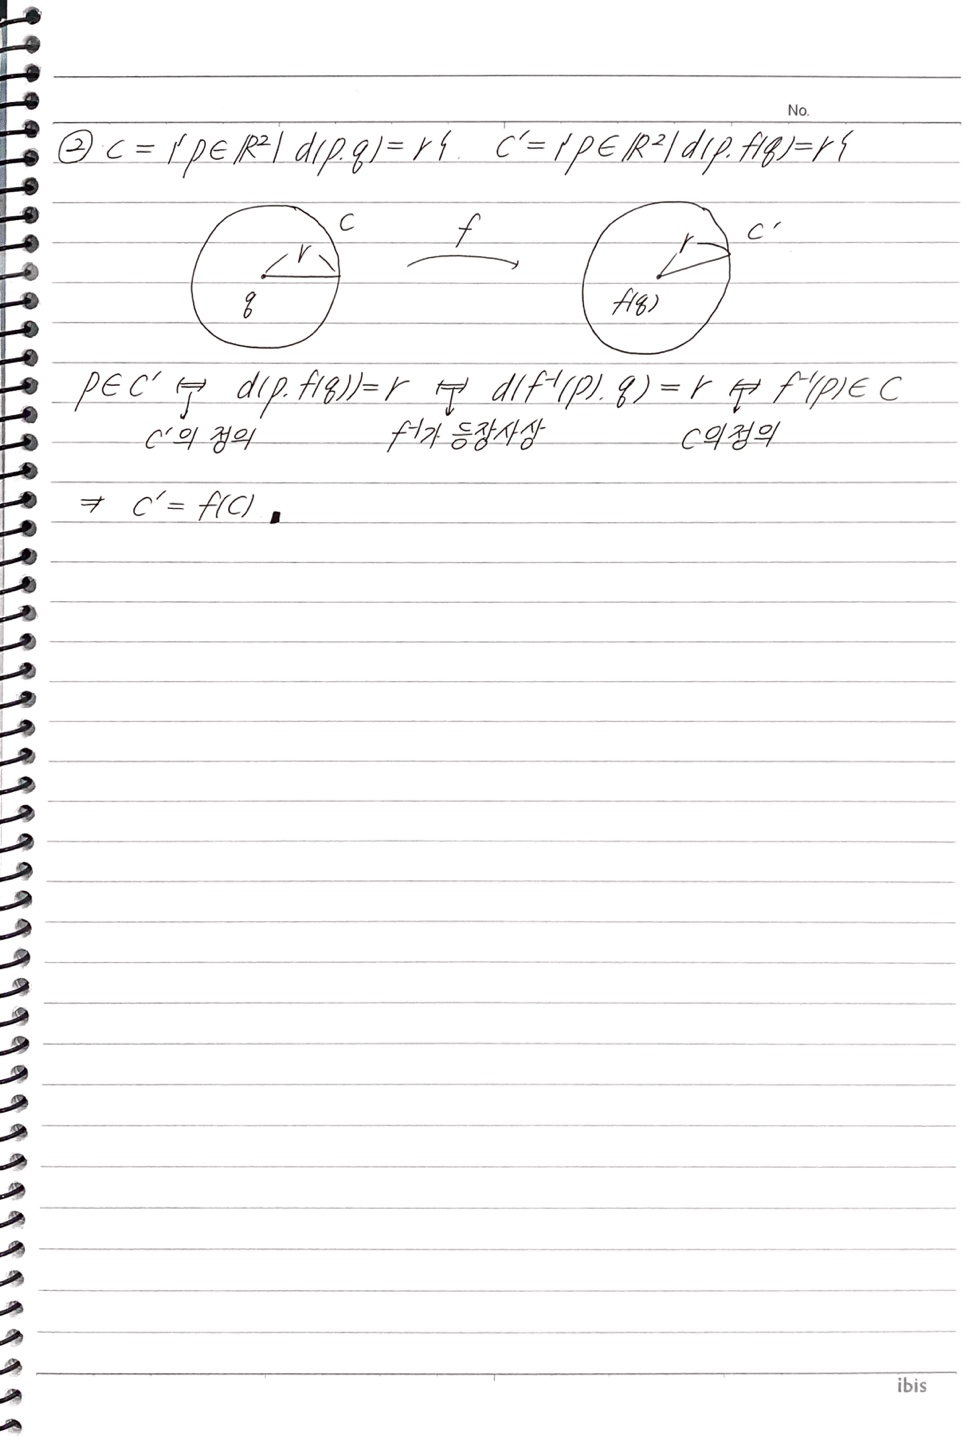 No.
② C = {p∈ℝ² | d(p.q)=r}. C′={p∈ℝ² | d(p.f(q)=r}
C f C′
r r
q f(q)
p∈C′ ⟺ d(p.f(q))=r ⟺ d(f⁻¹(p).q)=r ⟺ f⁻¹(p)∈C
C′의 정의 f⁻¹가 등장사상 C의 정의
⇒ C′ = f(C) ∎
ibis